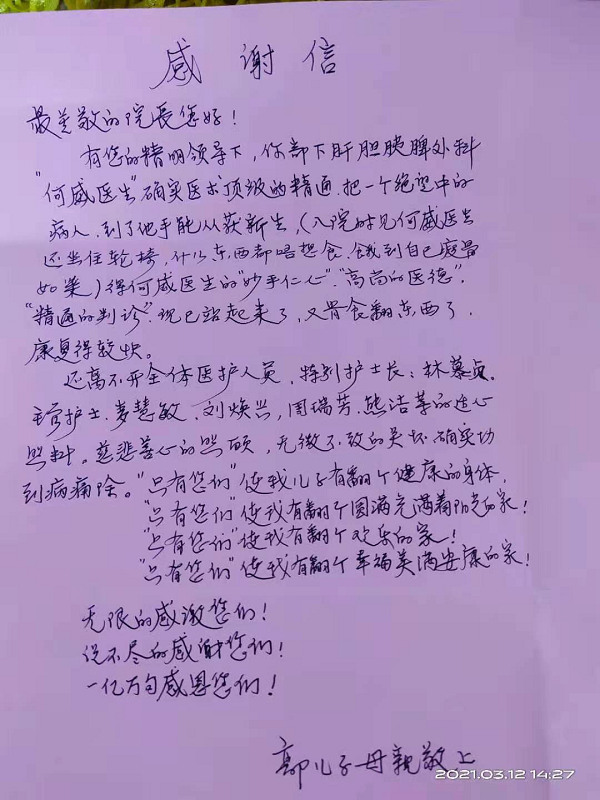 感谢信
最尊敬的院長您好！
有您的精明领导下，你部下肝胆胰脾外科
"何威医生"确实医术顶级的精通.把一个绝望中的
病人.到了他手能从获新生，(入院时见何威医生
还坐住轮椅，什么东西都唔想食.饿到自己瘦骨
如柴)得何威医生的"妙手仁心"."高尚的医德".
"精通的判诊".现已站起来了，又肯食翻东西了.
康复得较快。
还离不开全体医护人员，特别护士长：林慕贞.
护士.麦慧敏.刘焕兴，周瑞芳.熊洁等的进心
照料。慈悲善心的照顾，无微不致的关怀确实功
到病痛除。"只有您们"使我儿子有翻个健康的身体.
"只有您们"使我有翻个圆满充满着阳光的家！
"只有您们"使我有翻个欢乐的家！
"只有您们"使我有翻个幸福美满安康的家！
无限的感谢您们！
说不尽的感谢您们！
一亿万句感恩您们！
儿子母親敬上
2021.03.12 14:27